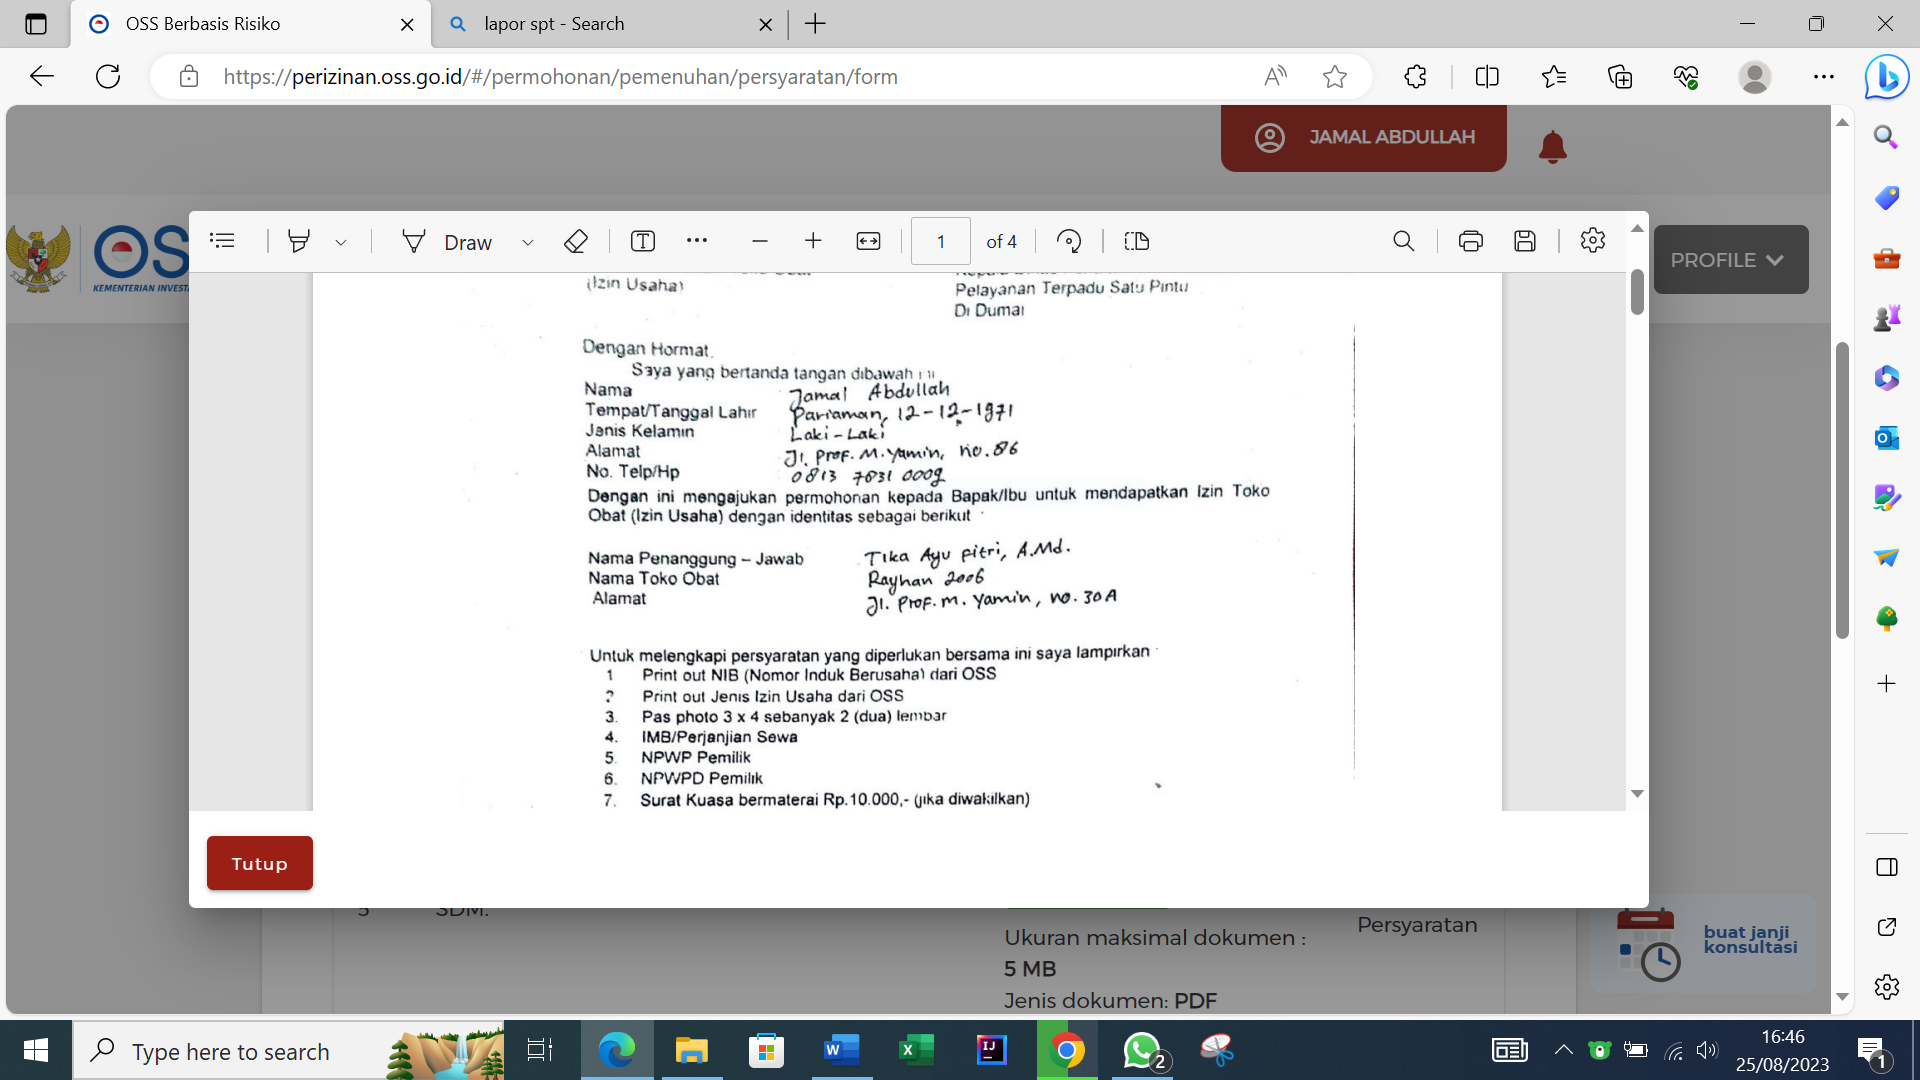 OSS Berbasis Risiko
lapor spt - Search
https://perizinan.oss.go.id/#/permohonan/pemenuhan/persyaratan/form
JAMAL ABDULLAH
OSS
KEMENTERIAN INVEST
PROFILE
Draw
1 of 4
(Izin Usaha)
Pelayanan Terpadu Satu Pintu
Di Dumai
Dengan Hormat,
Saya yang bertanda tangan dibawah ini
Nama Jamal Abdullah
Tempat/Tanggal Lahir Pariaman, 12-12-1971
Janis Kelamin Laki-Laki
Alamat Jl. Prof. M. Yamin, no. 86
No. Telp/Hp 0813 7831 0009
Dengan ini mengajukan permohonan kepada Bapak/Ibu untuk mendapatkan Izin Toko
Obat (Izin Usaha) dengan identitas sebagai berikut
Nama Penanggung – Jawab Tika Ayu Fitri, A.Md.
Nama Toko Obat Rayhan 2006
Alamat Jl. Prof. M. Yamin, no. 30A
Untuk melengkapi persyaratan yang diperlukan bersama ini saya lampirkan
1 Print out NIB (Nomor Induk Berusaha) dari OSS
2 Print out Jenis Izin Usaha dari OSS
3. Pas photo 3 x 4 sebanyak 2 (dua) lembar
4. IMB/Perjanjian Sewa
5. NPWP Pemilik
6. NPWPD Pemilik
7. Surat Kuasa bermaterai Rp.10.000,- (jika diwakilkan)
Tutup
5 SDM.
Persyaratan
Ukuran maksimal dokumen :
5 MB
Jenis dokumen: PDF
buat janji
konsultasi
Type here to search
2
16:46
25/08/2023
1